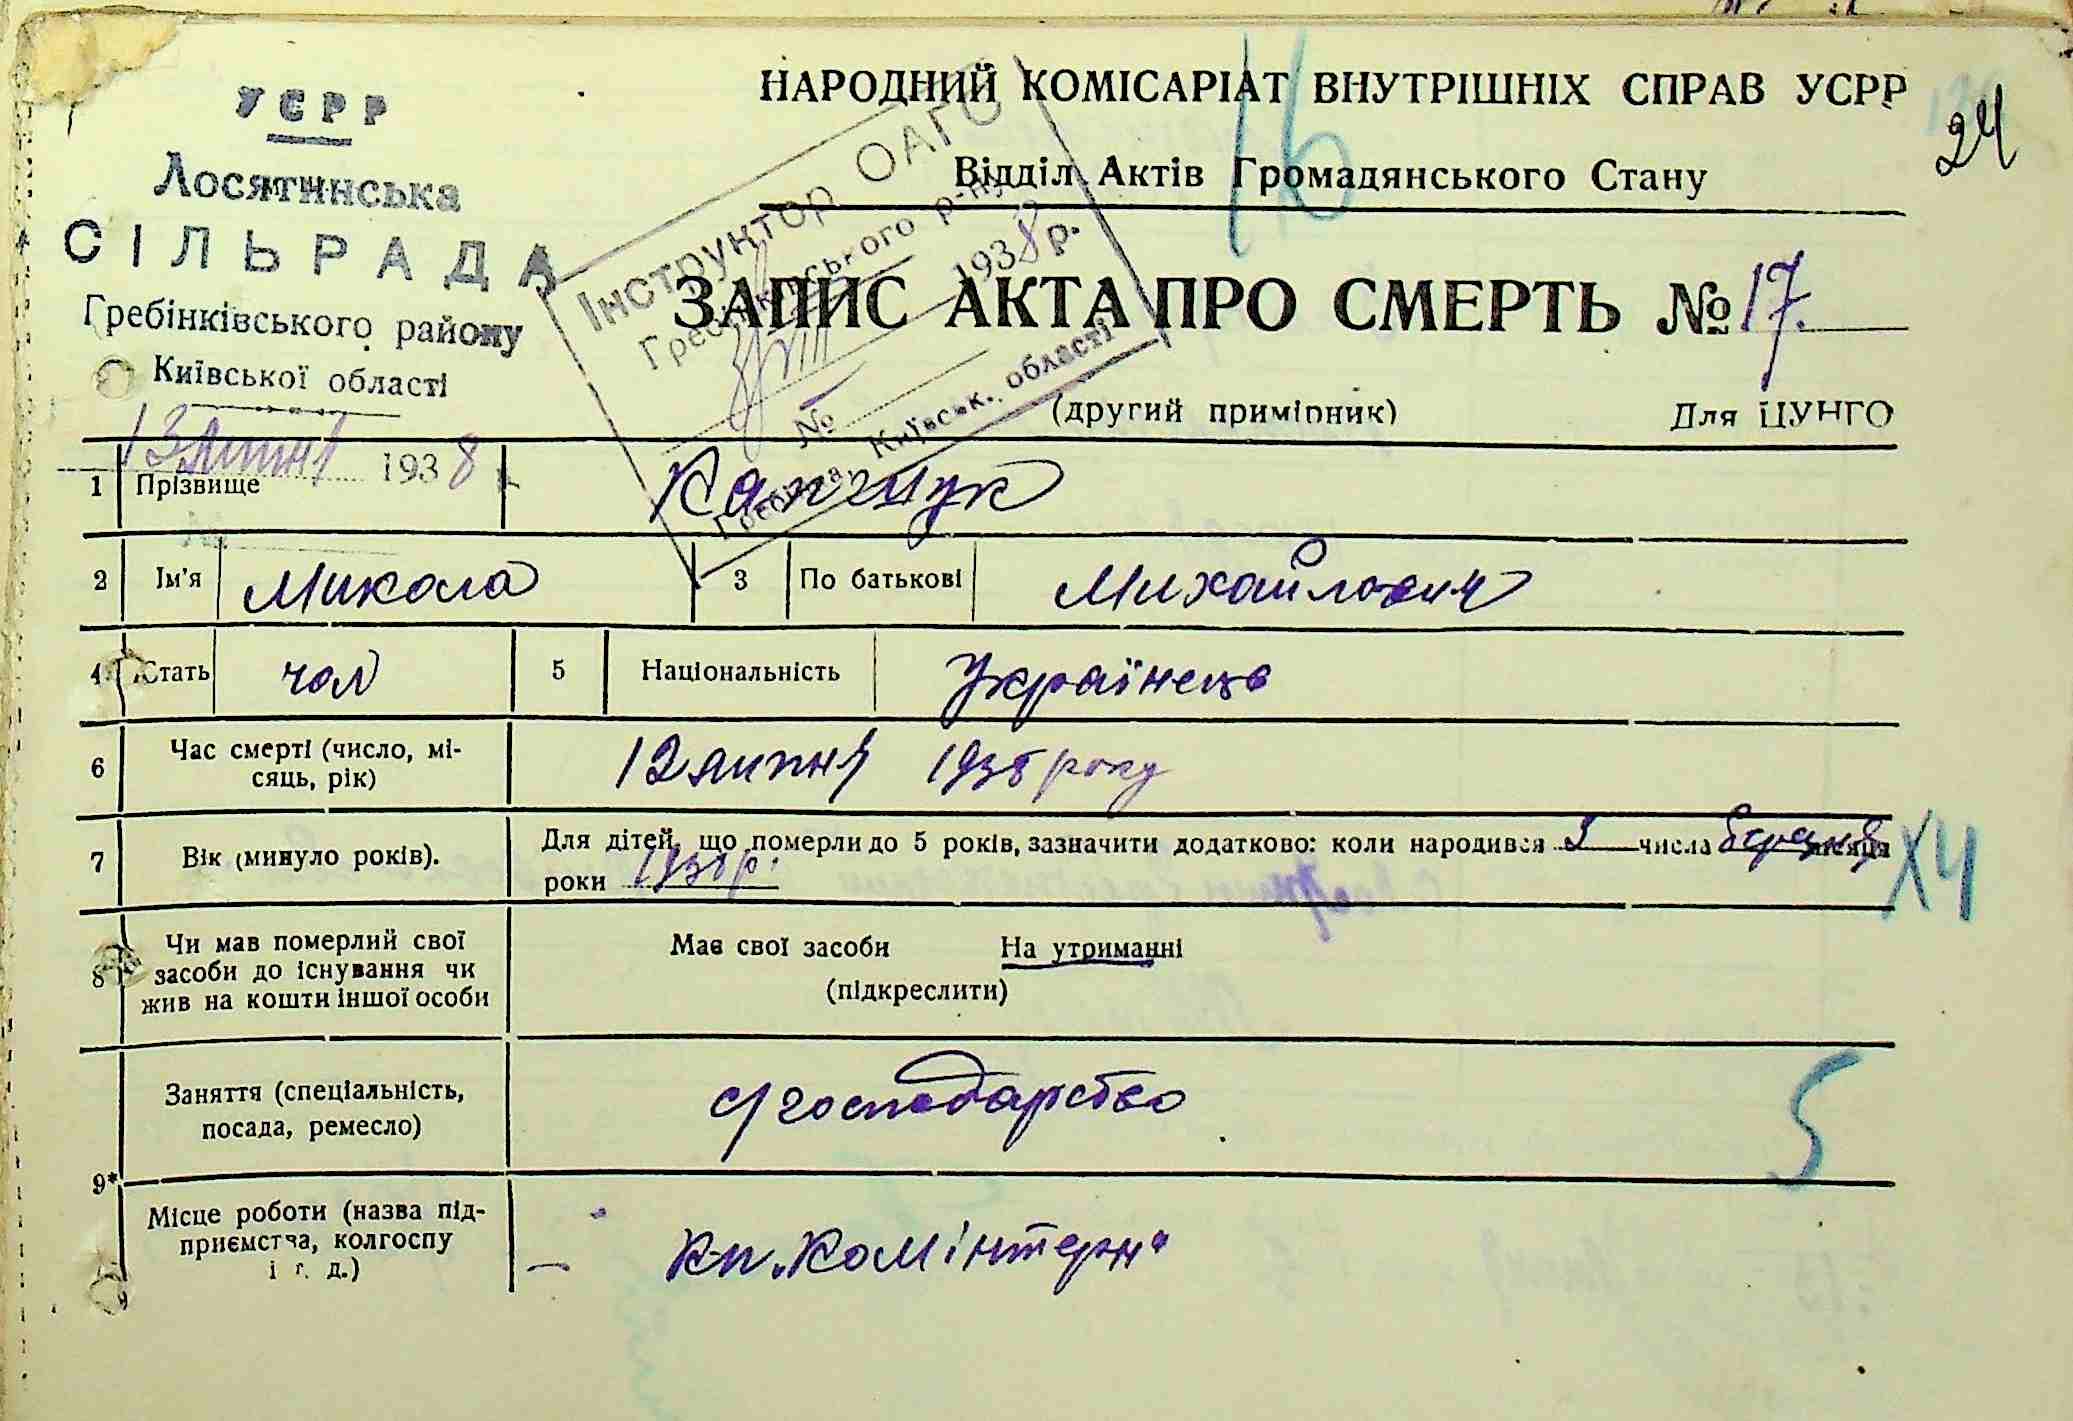 УСРР
Лосятинська
СІЛЬРАДА
Гребінківського району
Київської області
13 липня 1938
№
НАРОДНИЙ КОМІСАРІАТ ВНУТРІШНІХ СПРАВ УСРР
24
16
Відділ Актів Громадянського Стану
Інструктор ОАГС
Гребінківського р-ну
VIII 1938 р.
№
Гребінка, Київськ. області
ЗАПИС АКТА ПРО СМЕРТЬ № 17.
(другий примірник) Для ЦУНГО
1 Прізвище
2 Ім'я Микола 3 По батькові Михайлович
4 Стать чол 5 Національність Українець
6 Час смерті (число, мі-
сяць, рік) 12 липня 1938 року
7 Вік (минуло років). Для дітей, що померли до 5 років, зазначити додатково: коли народився 3 числа березня місяця
роки 1938 р.
ХЧ
8 Чи мав померлий свої
засоби до існування чи
жив на кошти іншої особи
Має свої засоби На утриманні
(підкреслити)
9* Заняття (спеціальність,
посада, ремесло) с/господарство
5
Місце роботи (назва під-
приємства, колгоспу
і т. д.) – к-п „Комінтерн"